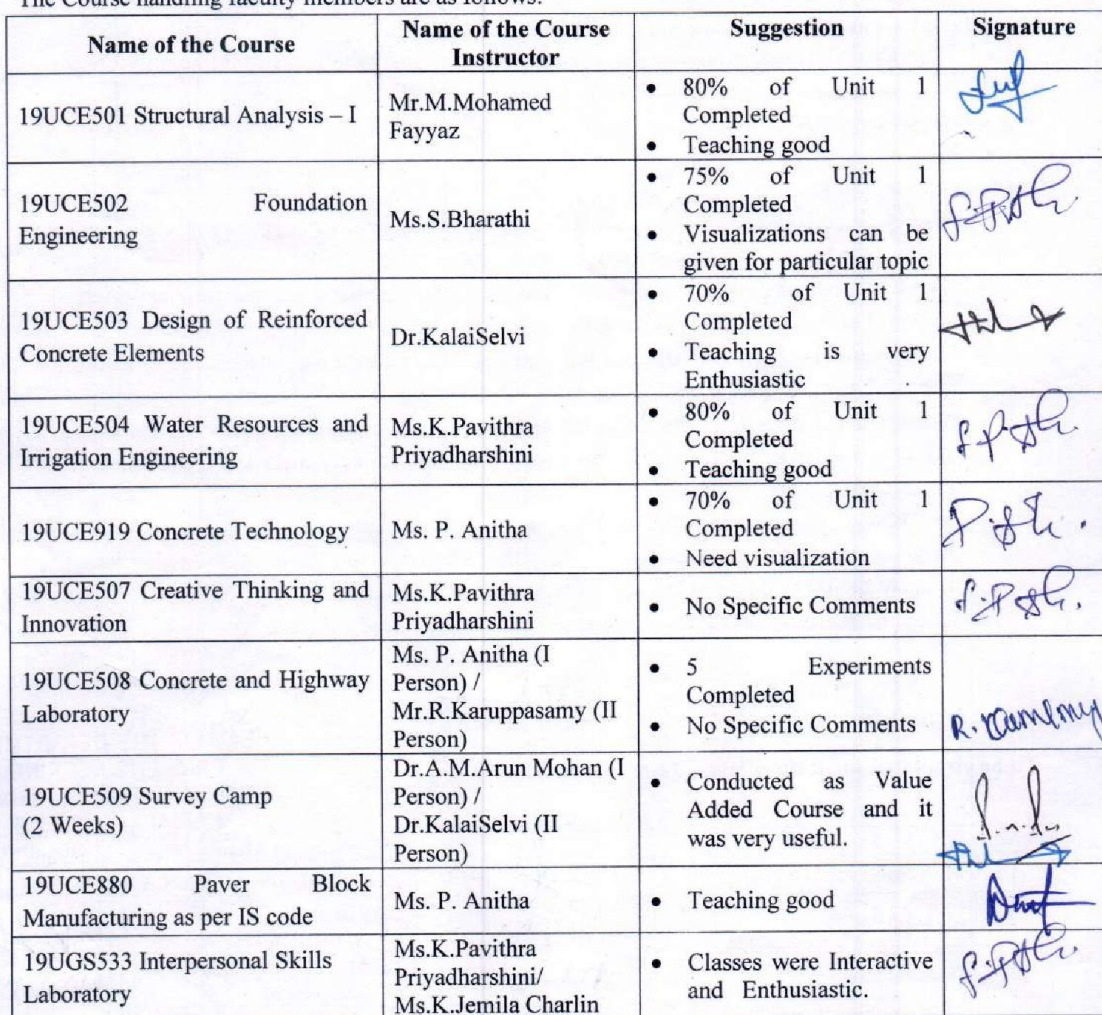 The Course handling faculty members are as follows:
Name of the Course
Name of the Course
Instructor
Suggestion
Signature
19UCE501 Structural Analysis – I
Mr.M.Mohamed
Fayyaz
• 80% of Unit 1
Completed
• Teaching good
19UCE502 Foundation
Engineering
Ms.S.Bharathi
• 75% of Unit 1
Completed
• Visualizations can be
given for particular topic
19UCE503 Design of Reinforced
Concrete Elements
Dr.KalaiSelvi
• 70% of Unit 1
Completed
• Teaching is very
Enthusiastic
19UCE504 Water Resources and
Irrigation Engineering
Ms.K.Pavithra
Priyadharshini
• 80% of Unit 1
Completed
• Teaching good
19UCE919 Concrete Technology
Ms. P. Anitha
• 70% of Unit 1
Completed
• Need visualization
19UCE507 Creative Thinking and
Innovation
Ms.K.Pavithra
Priyadharshini
• No Specific Comments
19UCE508 Concrete and Highway
Laboratory
Ms. P. Anitha (I
Person) /
Mr.R.Karuppasamy (II
Person)
• 5 Experiments
Completed
• No Specific Comments
19UCE509 Survey Camp
(2 Weeks)
Dr.A.M.Arun Mohan (I
Person) /
Dr.KalaiSelvi (II
Person)
• Conducted as Value
Added Course and it
was very useful.
19UCE880 Paver Block
Manufacturing as per IS code
Ms. P. Anitha
• Teaching good
19UGS533 Interpersonal Skills
Laboratory
Ms.K.Pavithra
Priyadharshini/
Ms.K.Jemila Charlin
• Classes were Interactive
and Enthusiastic.